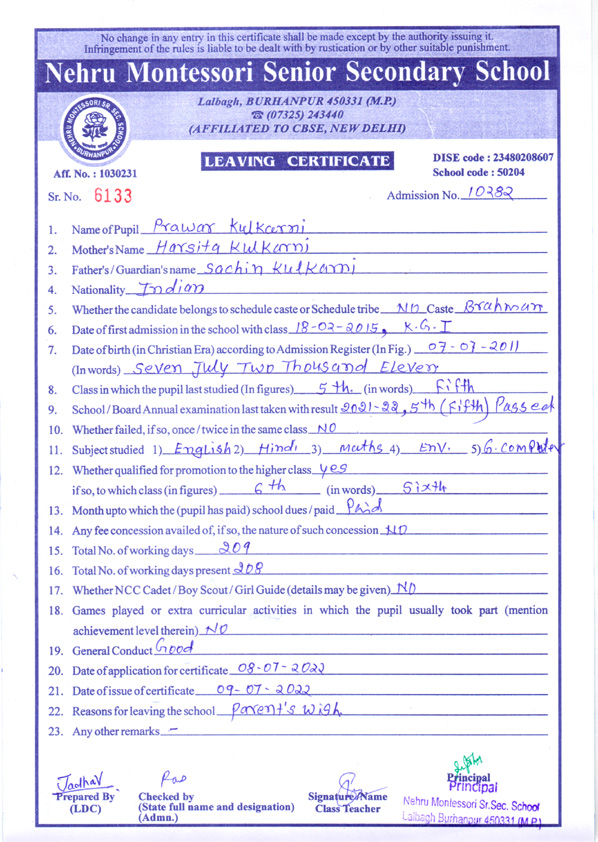 No change in any entry in this certificate shall be made except by the authority issuing it.
Infringement of the rules is liable to be dealt with by rustication or by other suitable punishment.
Nehru Montessori Senior Secondary School
Lalbagh, BURHANPUR 450331 (M.P.)
☎ (07325) 243440
(AFFILIATED TO CBSE, NEW DELHI)
NEHRU MONTESSORI SR. SEC. SCHOOL
BURHANPUR
LEAVING CERTIFICATE
DISE code : 23480208607
Aff. No. : 1030231
School code : 50204
Sr. No. 6133
Admission No. 10282
1. Name of Pupil Prawar Kulkarni
2. Mother's Name Harsita Kulkarni
3. Father's / Guardian's name Sachin Kulkarni
4. Nationality Indian
5. Whether the candidate belongs to schedule caste or Schedule tribe NO Caste Brahman
6. Date of first admission in the school with class 18-02-2015, K.G.I
7. Date of birth (in Christian Era) according to Admission Register (In Fig.) 07-07-2011
(In words) Seven July Two Thousand Eleven
8. Class in which the pupil last studied (In figures) 5th. (in words) Fifth
9. School / Board Annual examination last taken with result 2021-22, 5th (Fifth) Passed
10. Whether failed, if so, once / twice in the same class NO
11. Subject studied 1) English 2) Hindi 3) Maths 4) Env. 5) G.computer
12. Whether qualified for promotion to the higher class yes
if so, to which class (in figures) 6th (in words) Sixth
13. Month upto which the (pupil has paid) school dues / paid Paid
14. Any fee concession availed of, if so, the nature of such concession NO
15. Total No. of working days 209
16. Total No. of working days present 208
17. Whether NCC Cadet / Boy Scout / Girl Guide (details may be given) NO
18. Games played or extra curricular activities in which the pupil usually took part (mention
achievement level therein) NO
19. General Conduct Good
20. Date of application for certificate 08-07-2022
21. Date of issue of certificate 09-07-2022
22. Reasons for leaving the school Parent's Wish
23. Any other remarks -
Jadhav
Rao
Prepared By
(LDC)
Checked by
(State full name and designation)
(Admn.)
Signature/Name
Class Teacher
Principal
Principal
Nehru Montessori Sr.Sec. School
Lalbagh Burhanpur 450331 (M.P.)